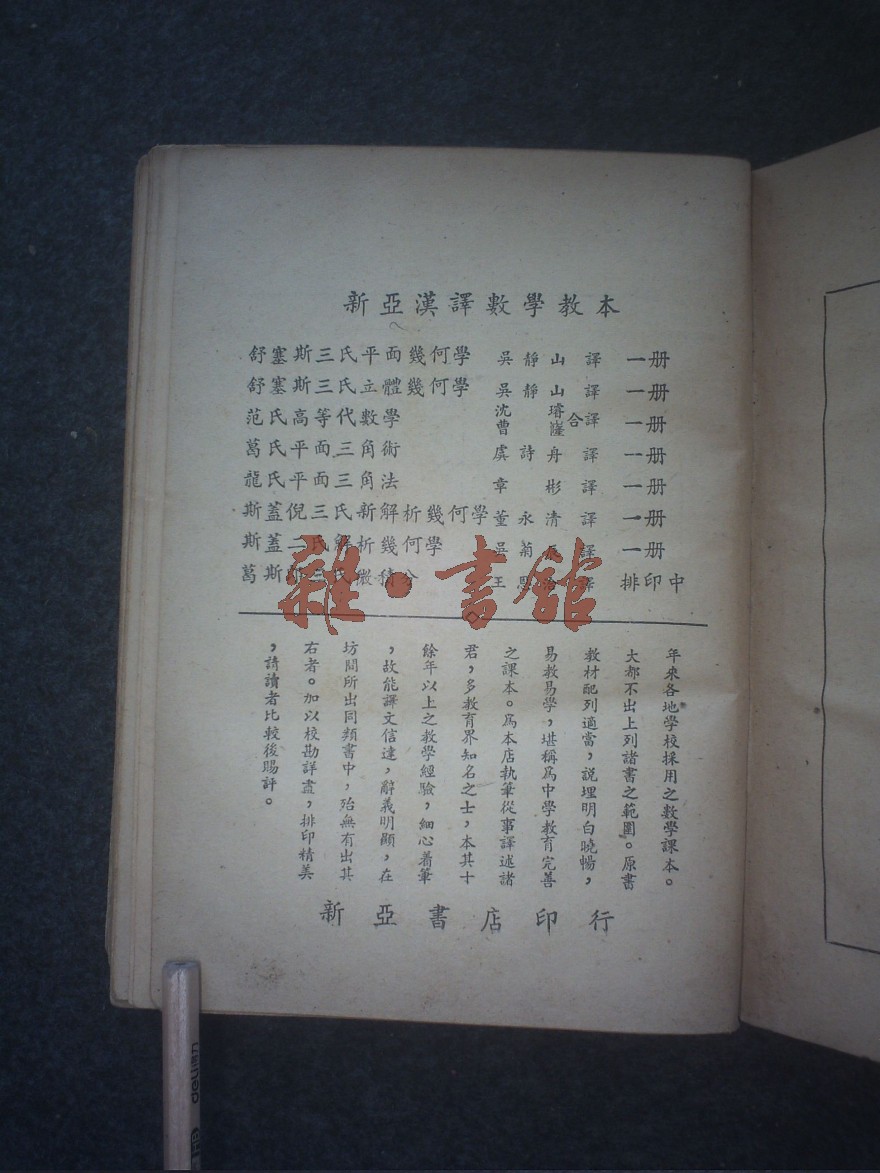 新亞漢譯數學教本
舒塞斯三氏平面幾何學 吳靜山 譯 一册
舒塞斯三氏立體幾何學 吳靜山 譯 一册
范氏高等代數學 沈璿 曹 合譯 一册
葛氏平面三角術 虞詩舟 譯 一册
龍氏平面三角法 章彬 譯 一册
斯蓋倪三氏新解析幾何學 董永清 譯 一册
斯蓋二氏解析幾何學 吳菊辰 譯 一册
葛斯 三氏微積分 王思 譯 排印中
年來各地學校採用之數學課本。
大都不出上列諸書之範圍。原書
教材配列適當，説理明白曉暢，
易教易學，堪稱爲中學教育完善
之課本。爲本店執筆從事譯述諸
君，多教育界知名之士，本其十
餘年以上之教學經驗，細心着筆
，故能譯文信達，辭義明顯，在
坊間所出同類書中，殆無有出其
右者。加以校勘詳盡，排印精美
，請讀者比較後賜評。
新亞書店印行
雜·書館
deli得力
HB